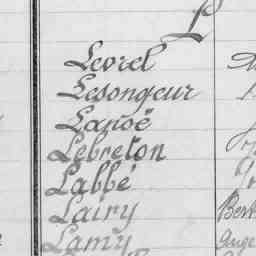 L
Levrel
Lesongeur
Lanoë
Lebreton
Labbé
Lairy
Lamy